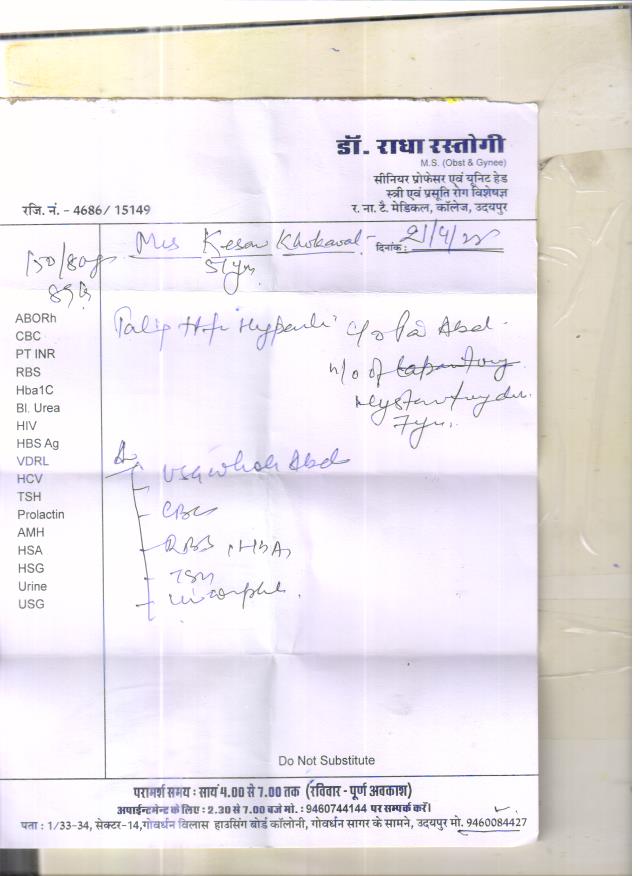 डॉ. राधा रस्तोगी
M.S. (Obst & Gynee)
सीनियर प्रोफेसर एवं यूनिट हेड
स्त्री एवं प्रसूति रोग विशेषज्ञ
र. ना. टै. मेडिकल, कॉलेज, उदयपुर
रजि. नं. - 4686/ 15149
Mrs Kesar Khokawal
दिनांक : 21/4/22
ABORh
CBC
PT INR
RBS
Hba1C
Bl. Urea
HIV
HBS Ag
VDRL
HCV
TSH
Prolactin
AMH
HSA
HSG
Urine
USG
c/o Abd.
H/o of
7yr.
USG whole Abd
CBC
RBS
TSH
Do Not Substitute
परामर्श समय : सायं 4.00 से 7.00 तक (रविवार - पूर्ण अवकाश)
अपाईन्टमेन्ट के लिए : 2.30 से 7.00 बजे मो. : 9460744144 पर सम्पर्क करें।
पता : 1/33-34, सेक्टर-14,गोवर्धन विलास हाउसिंग बोर्ड कॉलोनी, गोवर्धन सागर के सामने, उदयपुर मो. 9460084427